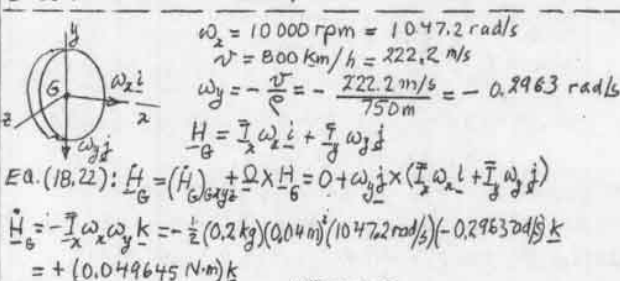 ω_x = 10 000 rpm = 1047.2 rad/s
v = 800 Km/h = 222.2 m/s
ω_y = - v/ρ = - 222.2 m/s / 750m = - 0.2963 rad/s
H_G = Ī_x ω_x i + Ī_y ω_y j
y
G
ω_x i
x
z
ω_y j
EQ.(18.22): Ḣ_G = (Ḣ_G)_Gxyz + Ω × H_G = 0 + ω_y j × (Ī_x ω_x i + Ī_y ω_y j)
Ḣ_G = - Ī_x ω_x ω_y k = - ½ (0.2 kg)(0.04 m)² (1047.2 rad/s)(-0.2963 rad/s) k
= + (0.049645 N·m) k